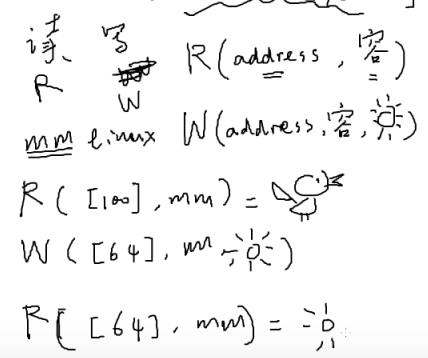 读、写 R(address, 容)
R W
mm linux W(address, 容, )
R([100], mm) =
W([64], mm )
R([64], mm) =